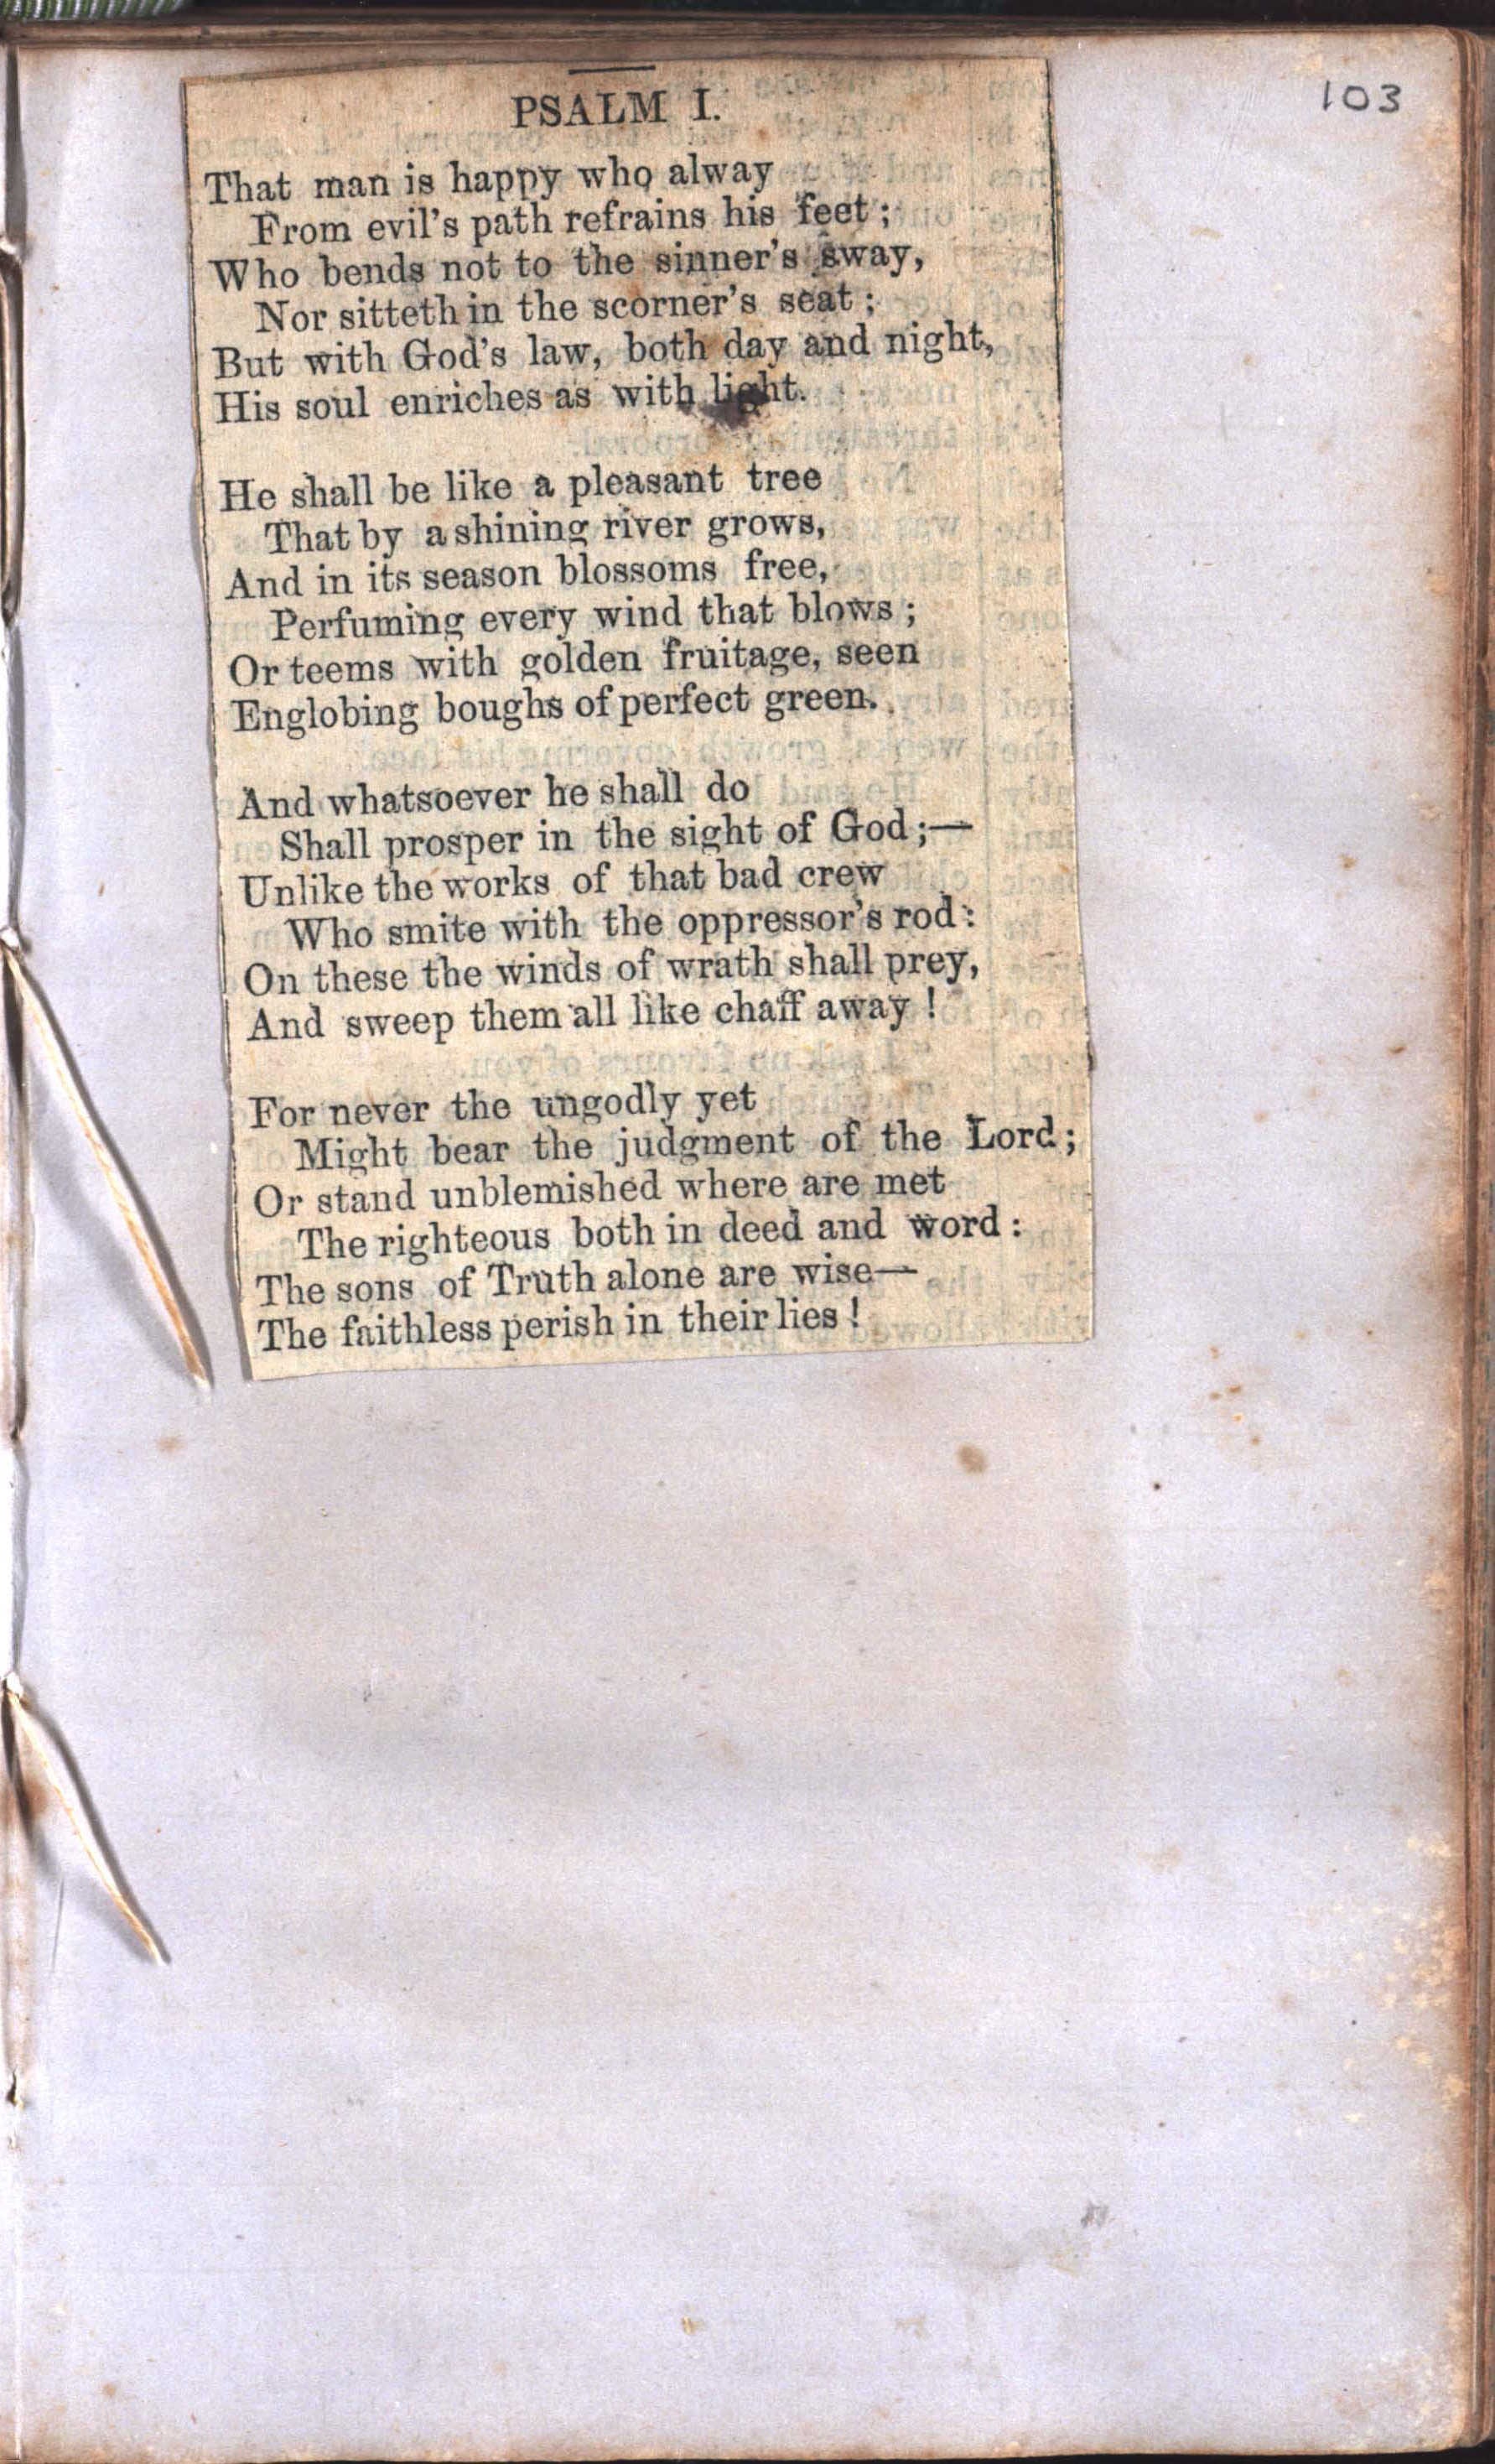 103
PSALM I.
That man is happy who alway
From evil's path refrains his feet;
Who bends not to the sinner's sway,
Nor sitteth in the scorner's seat;
But with God's law, both day and night,
His soul enriches as with light.
He shall be like a pleasant tree
That by a shining river grows,
And in its season blossoms free,
Perfuming every wind that blows;
Or teems with golden fruitage, seen
Englobing boughs of perfect green.
And whatsoever he shall do
Shall prosper in the sight of God;—
Unlike the works of that bad crew
Who smite with the oppressor's rod:
On these the winds of wrath shall prey,
And sweep them all like chaff away!
For never the ungodly yet
Might bear the judgment of the Lord;
Or stand unblemished where are met
The righteous both in deed and word:
The sons of Truth alone are wise—
The faithless perish in their lies!